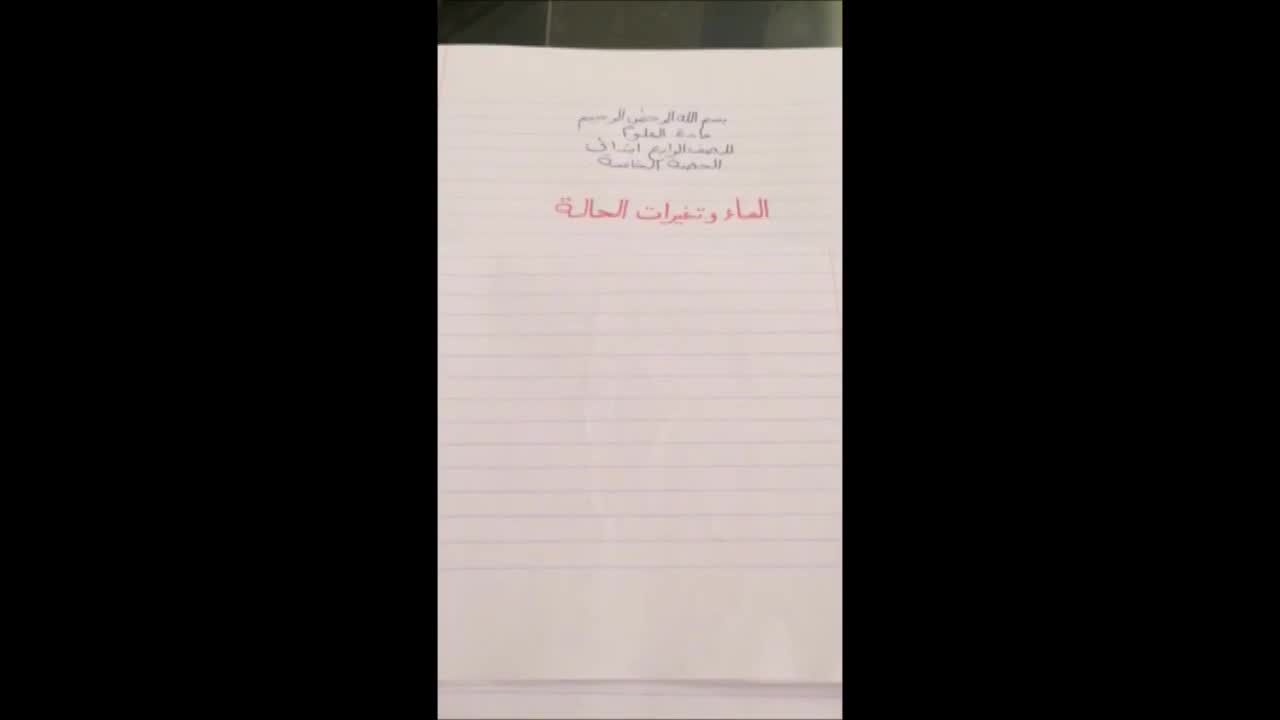 بسم الله الرحمن الرحيم
مادة العلوم
للصف الرابع ابتدائي
الحصة الخامسة
الماء وتغيرات الحالة